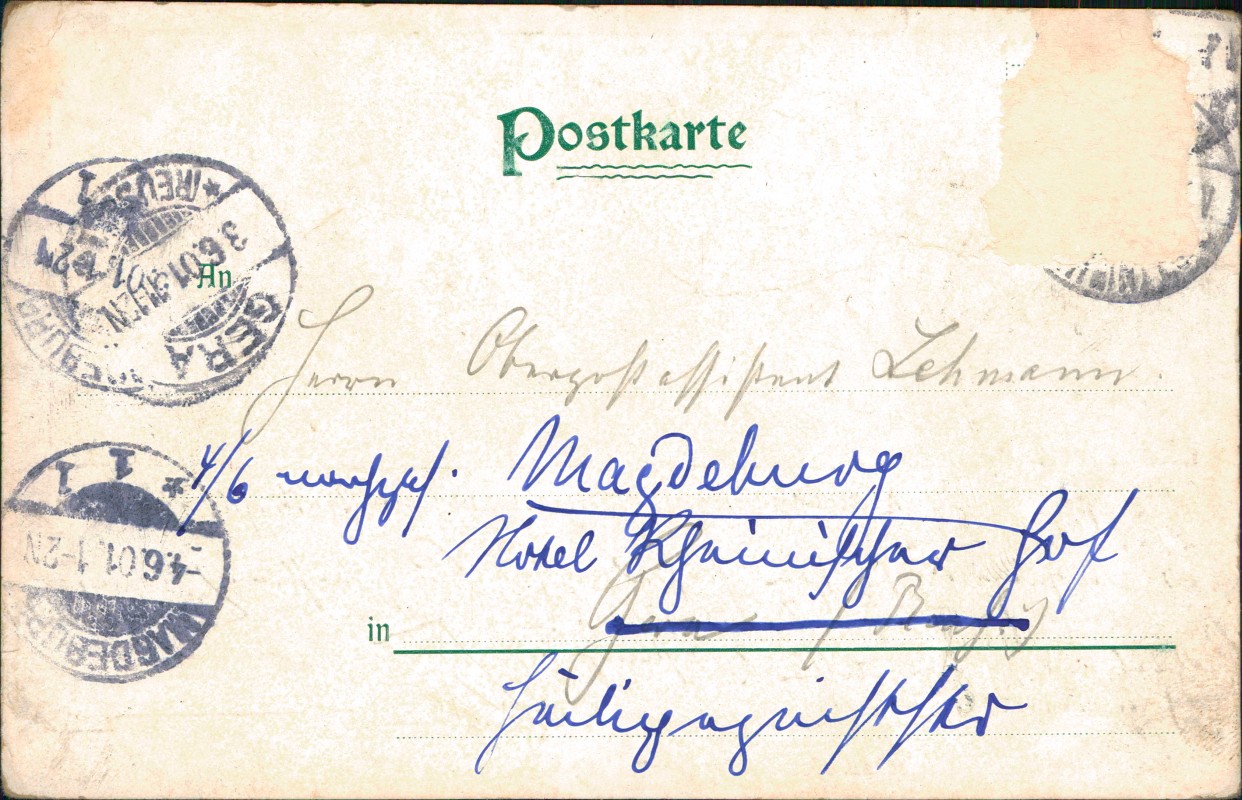 Postkarte
An
Herrn Oberpostassistent Lehmann.
4/6 Magdeburg
Hotel Rheinischer Hof
Gera / Reuß
in
Heiligegeiststr
GERA
(REUSS)
3.6.01.
MAGDEBURG
1 1
-4.6.01.1-2N